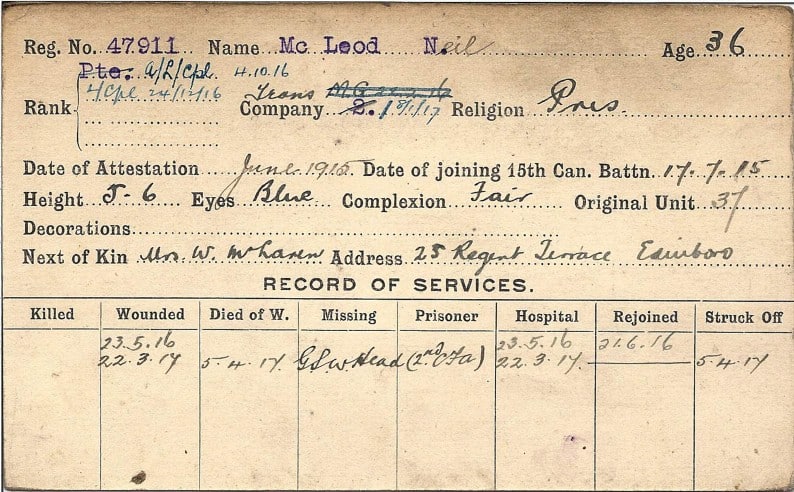 Reg. No. 47911 Name Mc Leod Neil Age 36
Pte. A/L/Cpl. 4.10.16
L/Cpl 24/12/16 Trans M.G 22.2.16
Rank Company 2. 18/1/17 Religion Pres.
Date of Attestation June 1915 Date of joining 15th Can. Battn. 17.7.15
Height 5-6 Eyes Blue Complexion Fair Original Unit 37
Decorations
Next of Kin Mrs. W. McLaren Address 25 Regent Terrace Edinboro
RECORD OF SERVICES.
Killed Wounded Died of W. Missing Prisoner Hospital Rejoined Struck Off
23.5.16 23.5.16 21.6.16
22.3.17 5.4.17 G.S.W. Head (2nd CFa) 22.3.17. 5.4.17